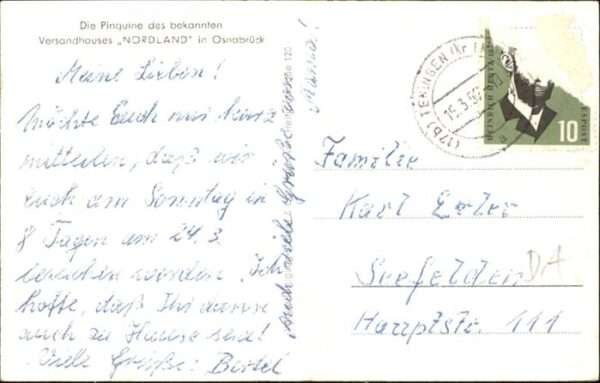 Die Pinguine des bekannten
Versandhauses „NORDLAND" in Osnabrück
Meine Lieben!
Möchte Euch nur kurz
mitteilen, daß wir
Euch am Sonntag in
8 Tagen am 24.3.
besuchen werden. Ich
hoffe, daß Ihr
auch zu Hause seid!
Viele Grüße
Auch viele Grüße von
Mama!
120
(17b) TENINGEN (Kr
15.3.
10
Familie
Karl Erler
Seefelden
Hauptstr. 111